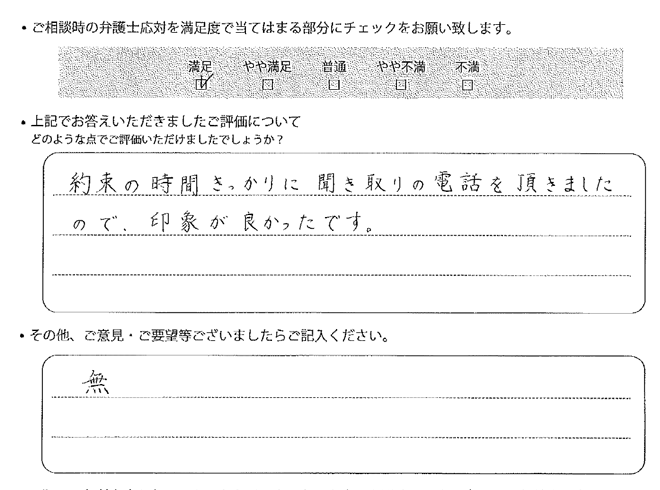 ・ご相談時の弁護士応対を満足度で当てはまる部分にチェックをお願い致します。
満足 やや満足 普通 やや不満 不満
・上記でお答えいただきましたご評価について
どのような点でご評価いただけましたでしょうか？
約束の時間きっかりに聞き取りの電話を頂きました
ので、印象が良かったです。
・その他、ご意見・ご要望等ございましたらご記入ください。
無